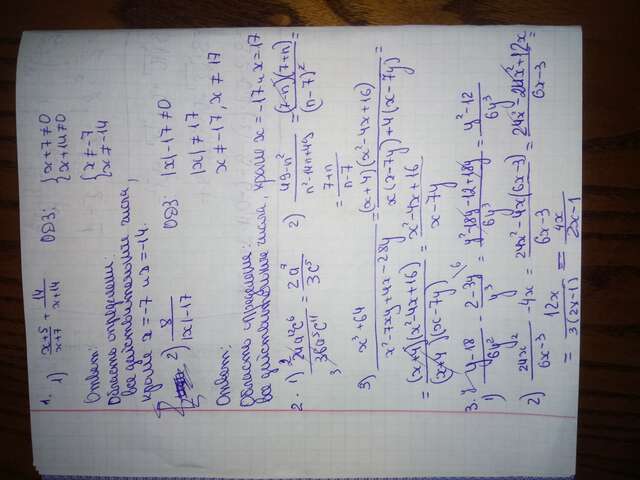 1. 1) (x+5)/(x+7) + 14/(x+14) ОДЗ: { x+7≠0 x+14≠0
{ x≠-7 x≠-14
Ответ:
Область определения:
все действительные числа,
кроме x=-7 и x=-14.
2) 8/(|x|-17) ОДЗ |x|-17≠0
|x|≠17
x≠-17, x≠17
Ответ:
Область определения:
все действительные числа, кроме x=-17 и x=17
2) (49-n²)/(n²-14n+49) = (7-n)(7+n)/(n-7)² =
= (7+n)/(n-7)
3) (x³-64)/(x²-7xy+4x-28y) = (x+4)(x²-4x+16)/(x(x-7y)+4(x-7y)) =
= (x+4)(x²-4x+16)/((x+4)(x-7y)) = (x²-4x+16)/(x-7y)
2) 24x²/(6x-3) - 4x = (24x²-4x(6x-3))/(6x-3) = (24x²-24x²+12x)/(6x-3) =
= 12x/(3(2x-1)) = 4x/(2x-1)